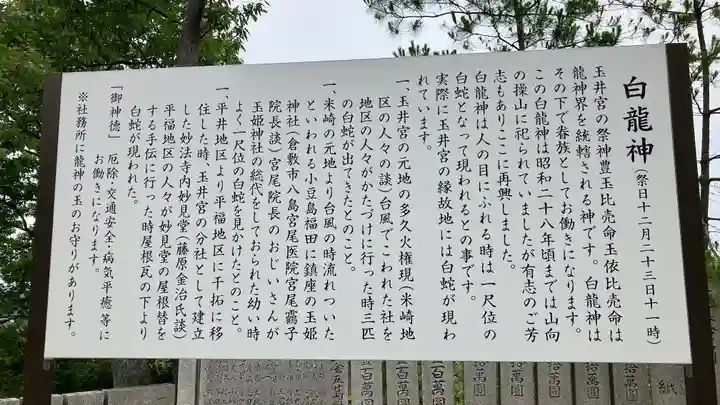 白龍神（祭日十二月二十三日十一時）
玉井宮の祭神豊玉比売命玉依比売命は
龍神界を統轄される神です。白龍神は
その下で眷族としてお働きになります。
この白龍神は昭和二十八年頃までは山向
の操山に祀られていましたが有志のご芳
志もありここに再興しました。
白龍神は人の目にふれる時は一尺位の
白蛇となって現われるとの事です。
実際に玉井宮の縁故地には白蛇が現わ
れています。
一、玉井宮の元地の多久火権現（米崎地
区の人々の談）台風でこわれた社を
地区の人々がかたづけに行った時三匹
の白蛇が出てきたとのこと。
一、米崎の元地より台風の時流れついた
といわれる小豆島福田に鎮座の玉姫
神社（倉敷市八島宮尾医院宮尾靄子
院長談）宮尾院長のおじいさんが
玉姫神社の総代をしておられた幼い時
よく一尺位の白蛇を見かけたとのこと。
一、平井地区より平福地区に干拓に移
住した時、玉井宮の分社として建立
した妙法寺内妙見堂（藤原金治氏談）
平福地区の人々が妙見堂の屋根替を
する手伝に行った時屋根瓦の下より
白蛇が現われた。
「御神徳」厄除・交通安全・病気平癒等に
お働きになります。
※社務所に龍神の玉のお守りがあります。
拾萬圓
拾萬圓
拾萬圓
拾萬圓
壹百萬圓
壹百萬圓